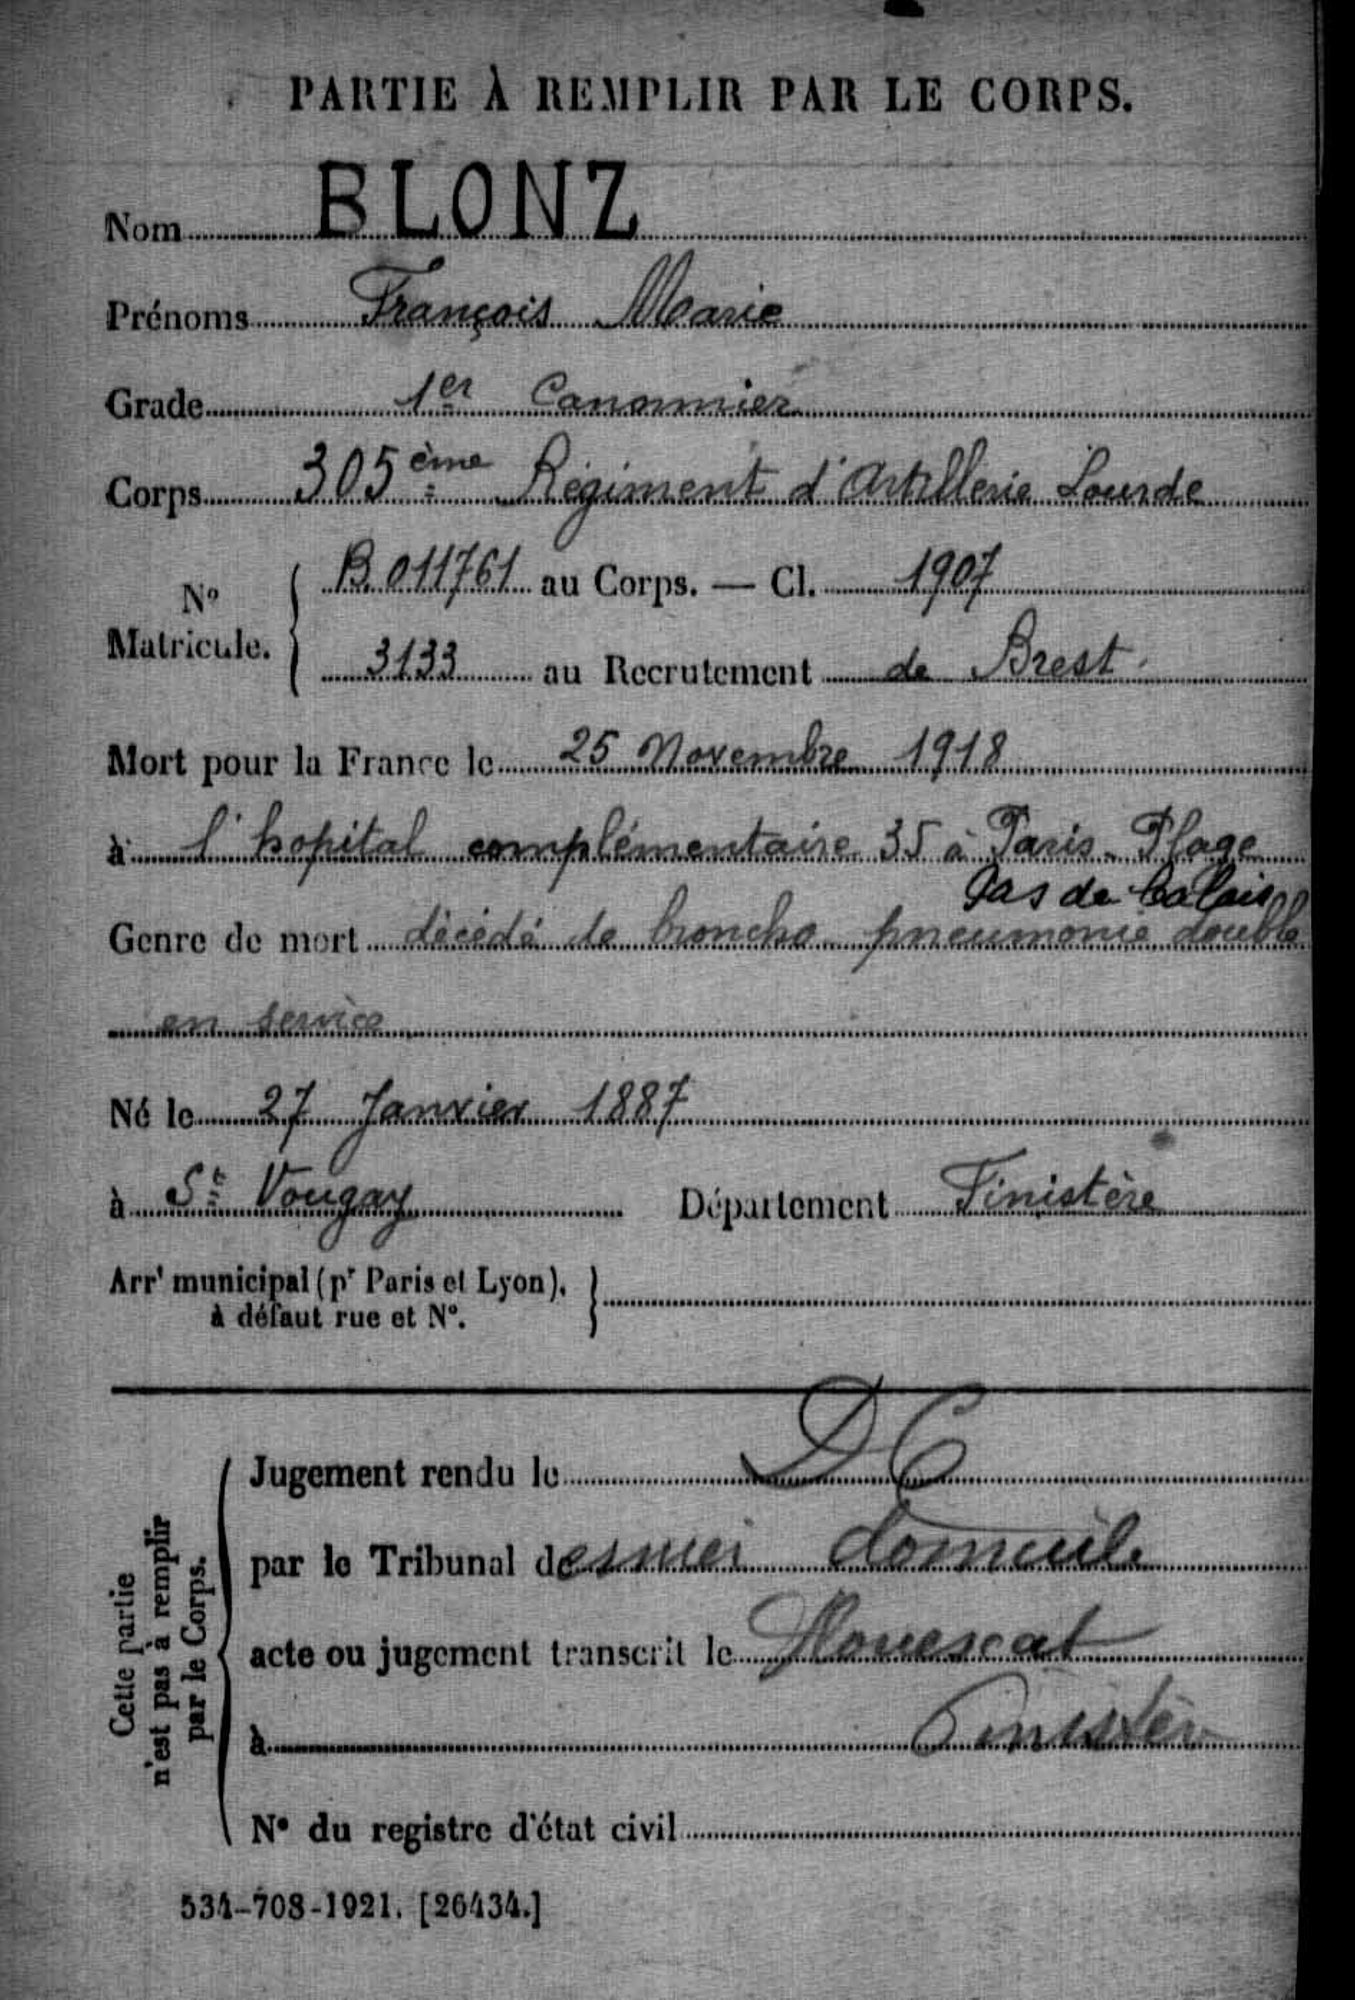 PARTIE À REMPLIR PAR LE CORPS.
Nom BLONZ
Prénoms François Marie
Grade 1er Canonnier
Corps 305ème Régiment d'Artillerie Lourde
No Matricule. B.011761 au Corps. — Cl. 1907
3133 au Recrutement de Brest.
Mort pour la France le 25 Novembre 1918
à l'hopital complémentaire 35 à Paris-Plage
Pas de Calais
Genre de mort décédé de broncho pneumonie double
en service
Né le 27 Janvier 1887
à St Vougay Département Finistère
Arrt municipal (pr Paris et Lyon),
à défaut rue et No.
Cette partie
n'est pas à remplir
par le Corps.
Jugement rendu le DC
par le Tribunal de domicile
acte ou jugement transcrit le Plouescat
à Finistère
No du registre d'état civil
534-708-1921. [26434.]